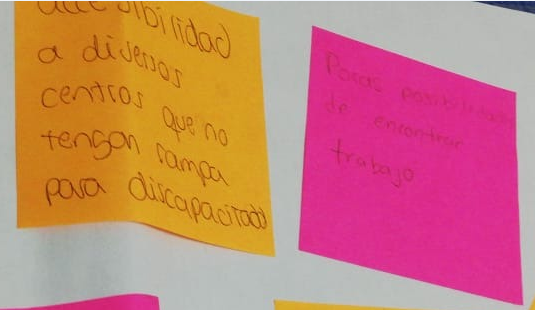 accesibilidad
a diversos
centros que no
tengan rampa
para discapacitado
Pocas posibilidades
de encontrar
trabajo